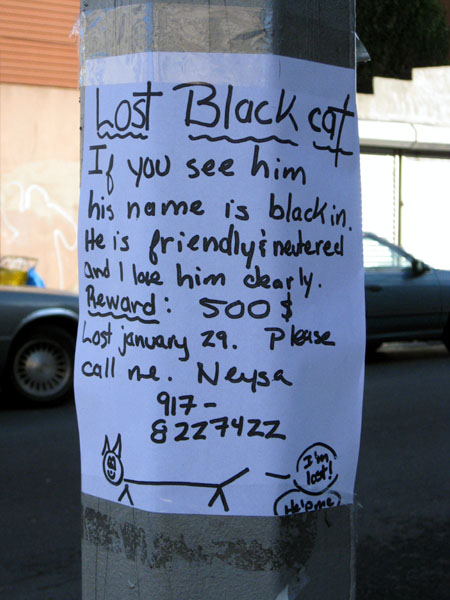 Lost Black cat
If you see him
his name is blackin.
He is friendly & neutered
and I love him dearly.
Reward: 500$
Lost january 29. Please
call me. Neysa
917-
8227422
I'm
lost!
Help me